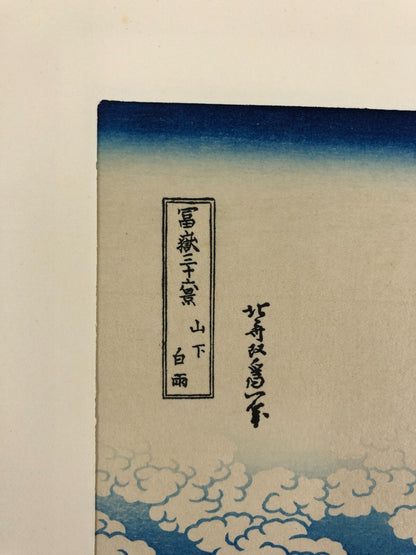 冨嶽三十六景 山下白雨
北斎改為一筆